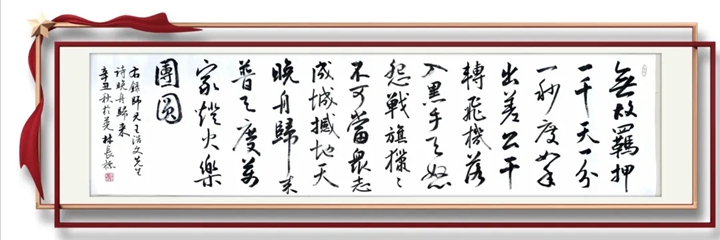 無故羈押
一千天一分
一秒度如年
出差公干
轉飛機落
入黑手天怒
怨戰旗獵〻
不可當衆志
成城撼地天
晚舟歸来
普天度萬
家燈火樂
團圆
右錄師兄王浩文先生
诗晚舟歸来
辛丑秋於莞林長